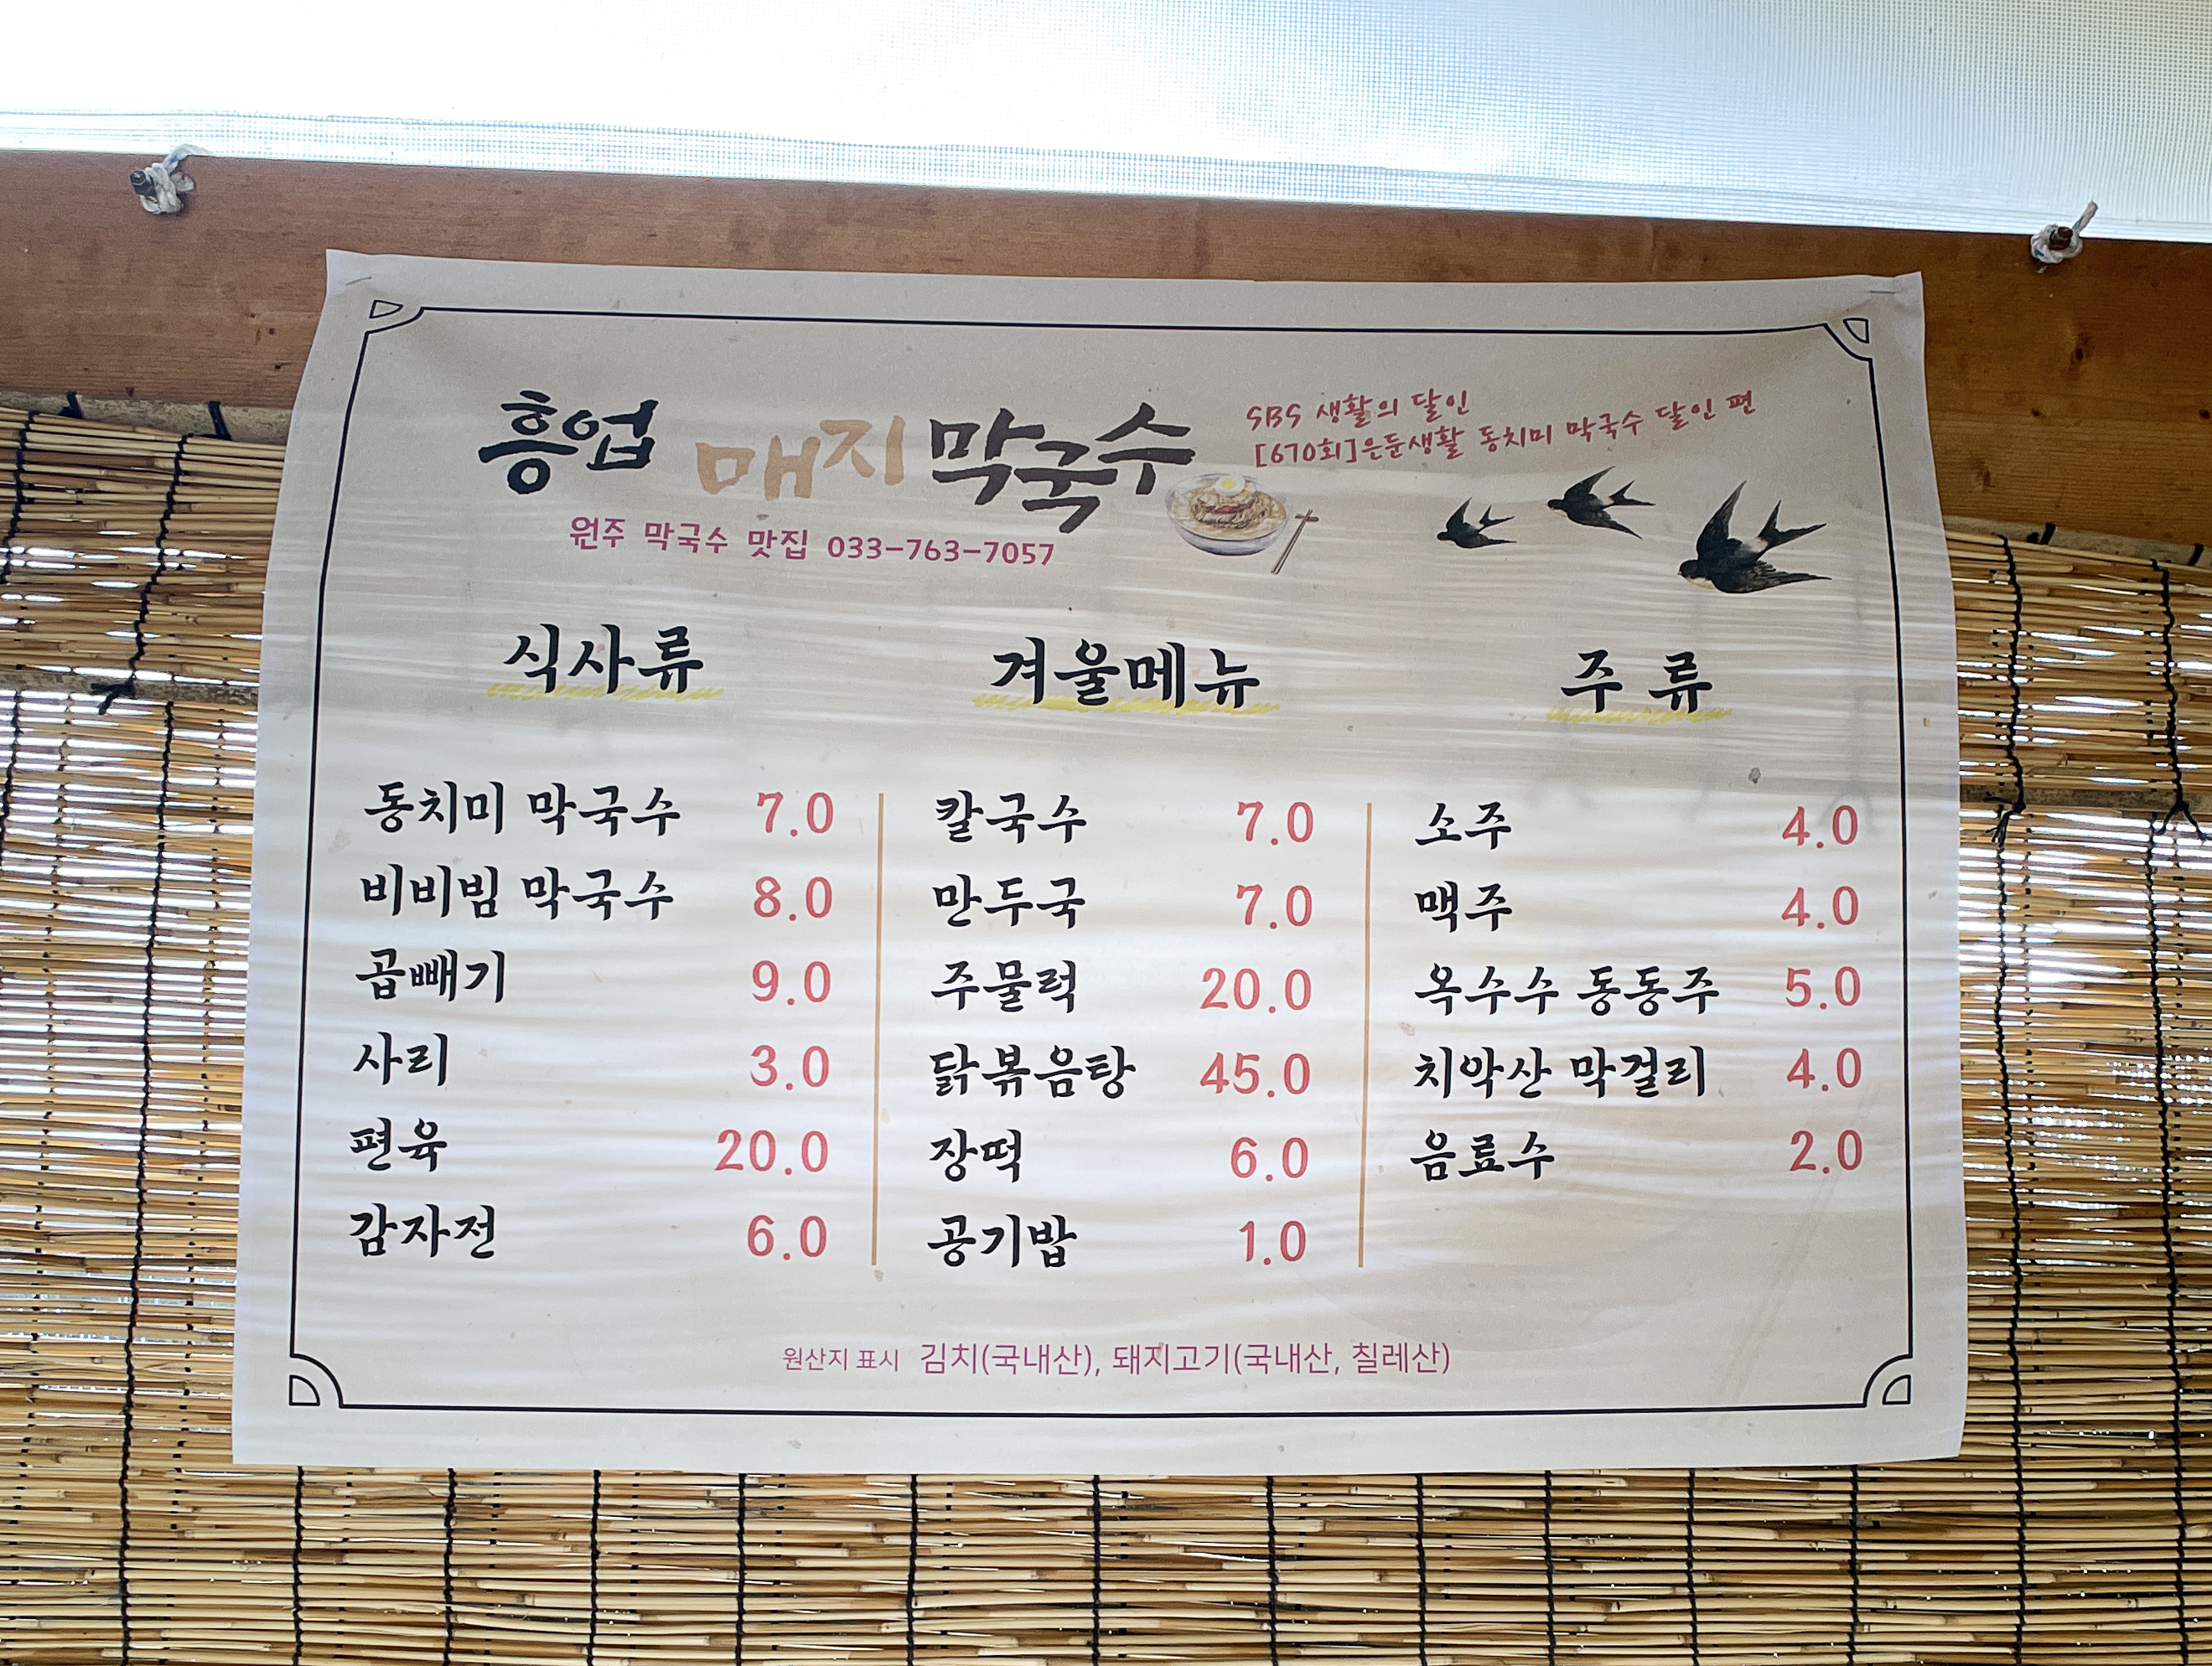 흥업 매지막국수
SBS 생활의 달인
[670회]은둔생활 동치미 막국수 달인 편
원주 막국수 맛집 033-763-7057
식사류
동치미 막국수 7.0
비비빔 막국수 8.0
곱빼기 9.0
사리 3.0
편육 20.0
감자전 6.0
겨울메뉴
칼국수 7.0
만두국 7.0
주물럭 20.0
닭볶음탕 45.0
장떡 6.0
공기밥 1.0
주 류
소주 4.0
맥주 4.0
옥수수 동동주 5.0
치악산 막걸리 4.0
음료수 2.0
원산지 표시 김치(국내산), 돼지고기(국내산, 칠레산)